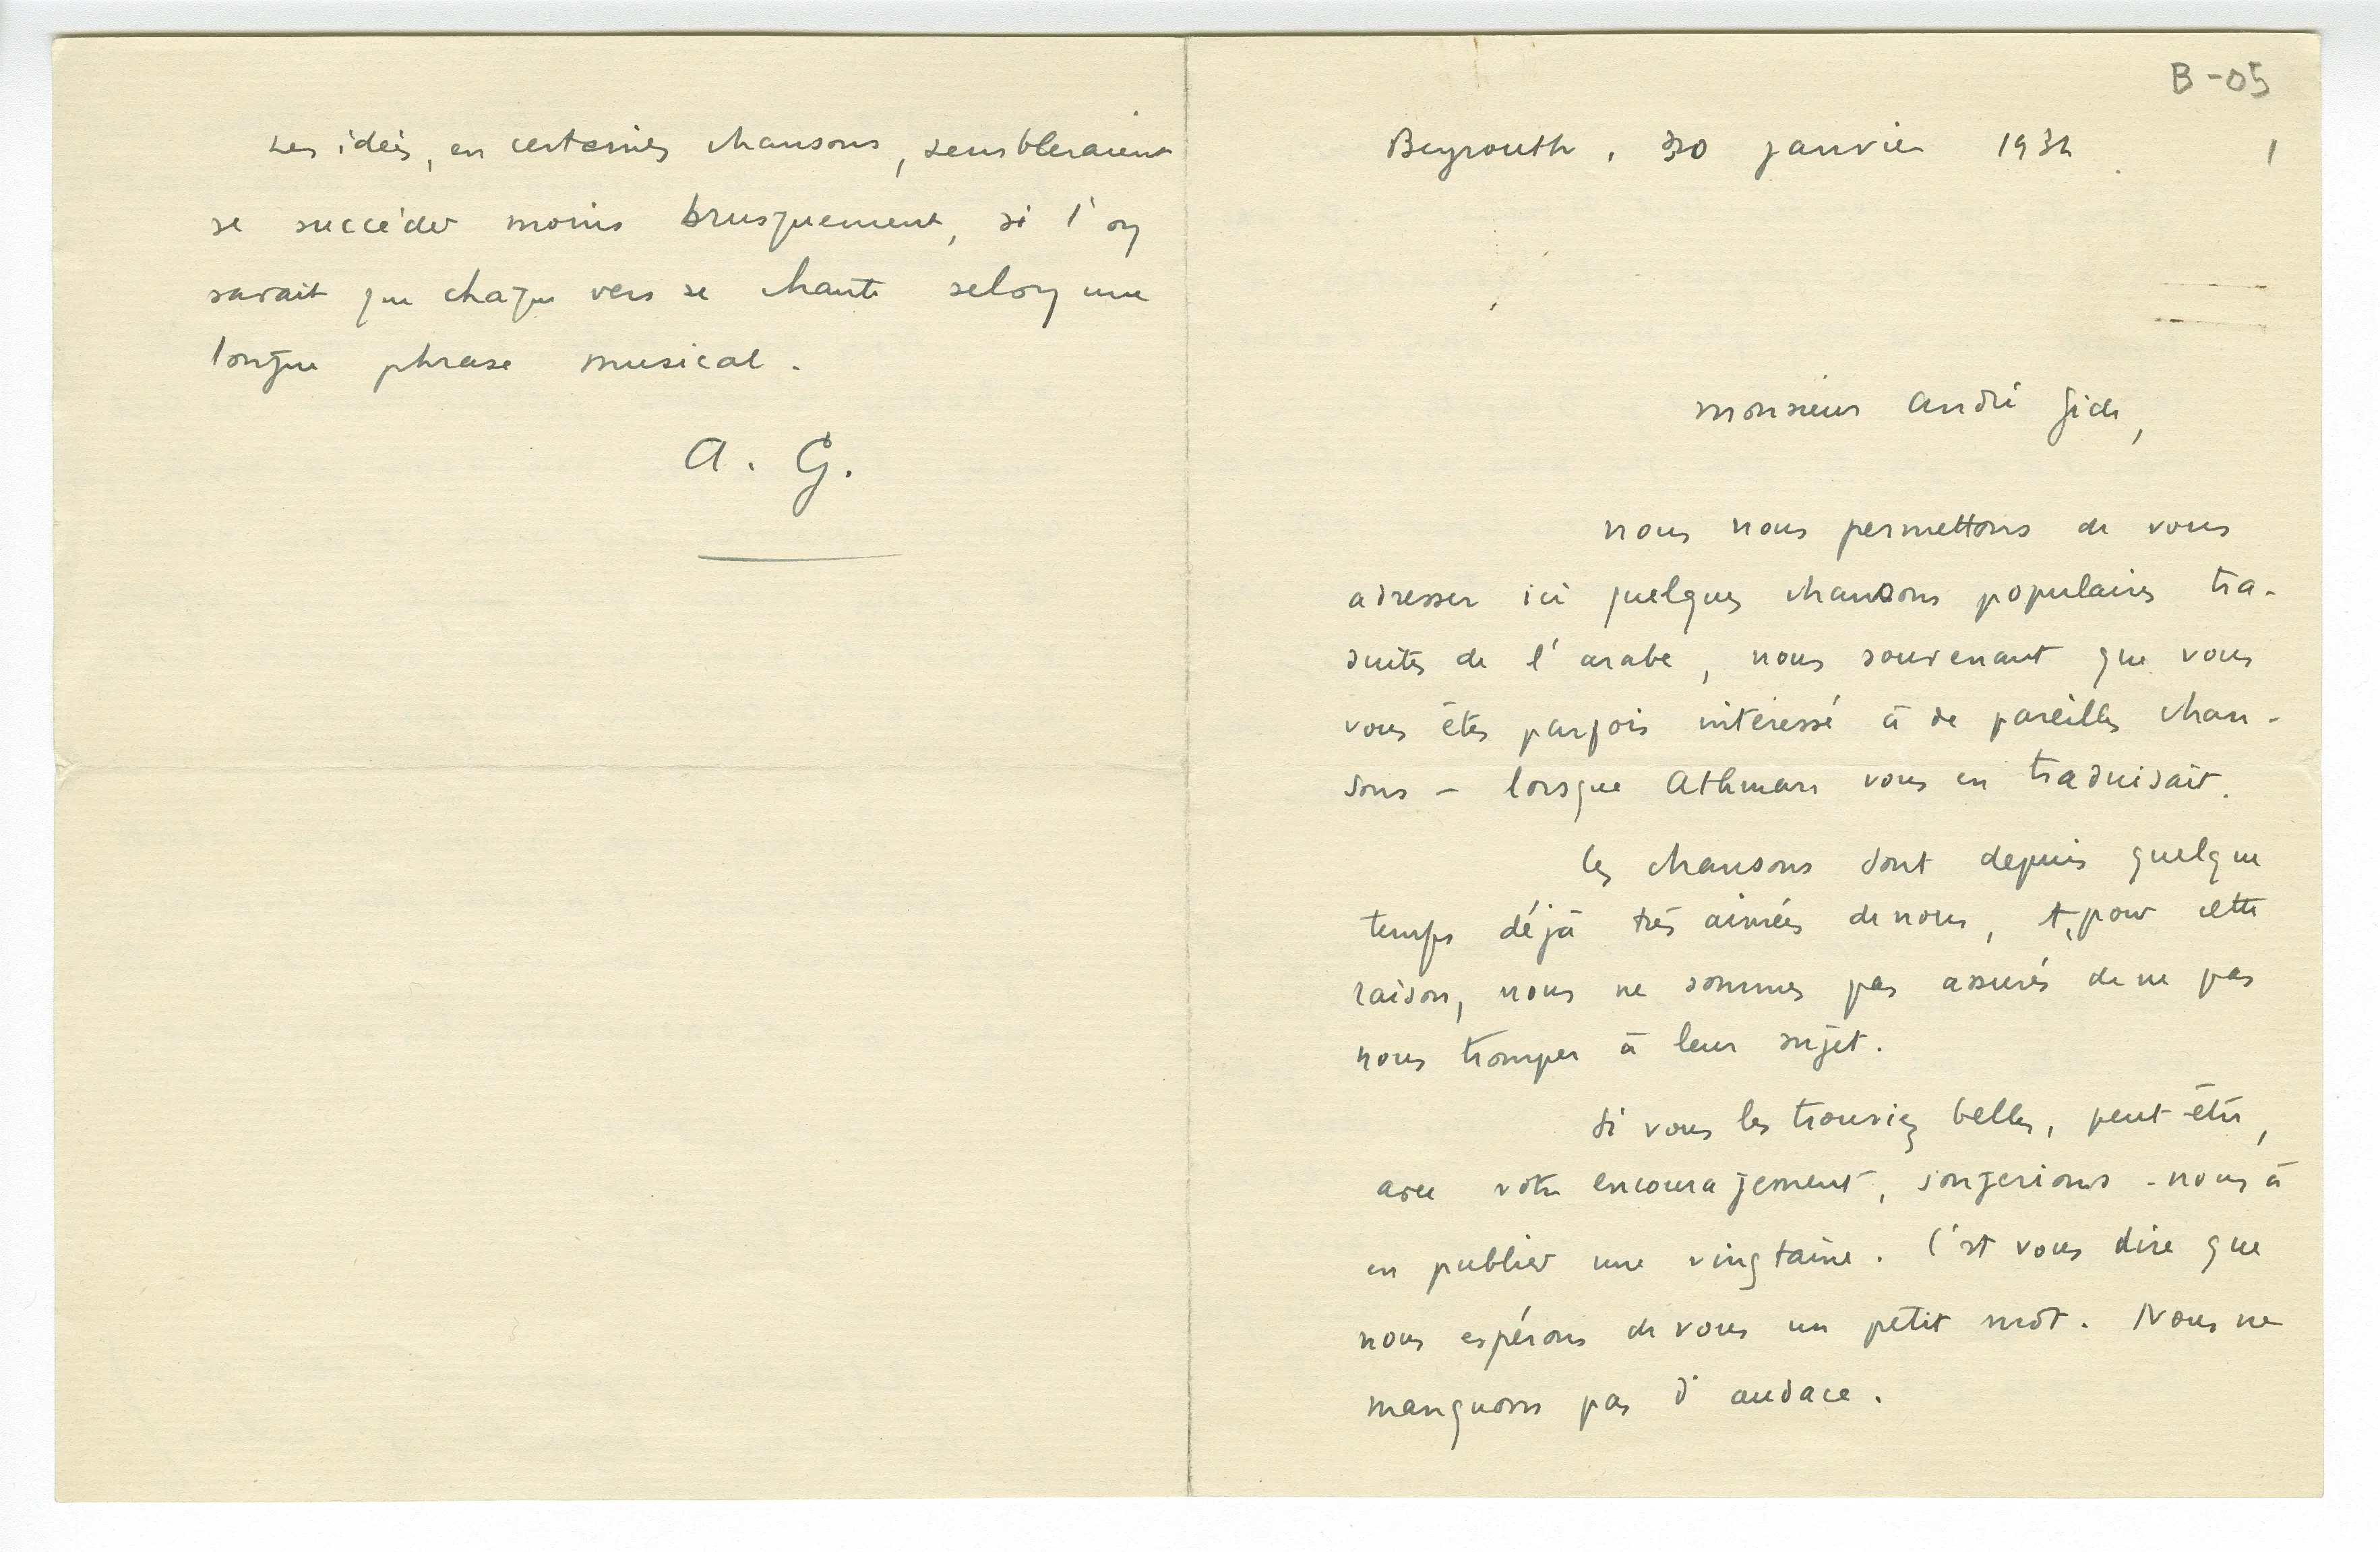 Les idées, en certaines chansons, sembleraient
se succéder moins brusquement, si l'on
savait que chaque vers se chante selon une
longue phrase musical.
A. G.
B-05
Beyrouth, 30 janvier 1932. 1
Monsieur André Gide,
Nous nous permettons de vous
adresser ici quelques chansons populaires tra-
duites de l'arabe, nous souvenant que vous
vous êtes parfois intéressé à de pareilles chan-
sons – lorsque Athman vous en traduisait.
Ces chansons sont depuis quelque
temps déjà très aimées de nous, et, pour cette
raison, nous ne sommes pas assurés de ne pas
nous tromper à leur sujet.
Si vous les trouviez belles, peut-être,
avec votre encouragement, songerions-nous à
en publier une vingtaine. C'est vous dire que
nous espérons de vous un petit mot. Nous ne
manquons pas d'audace.